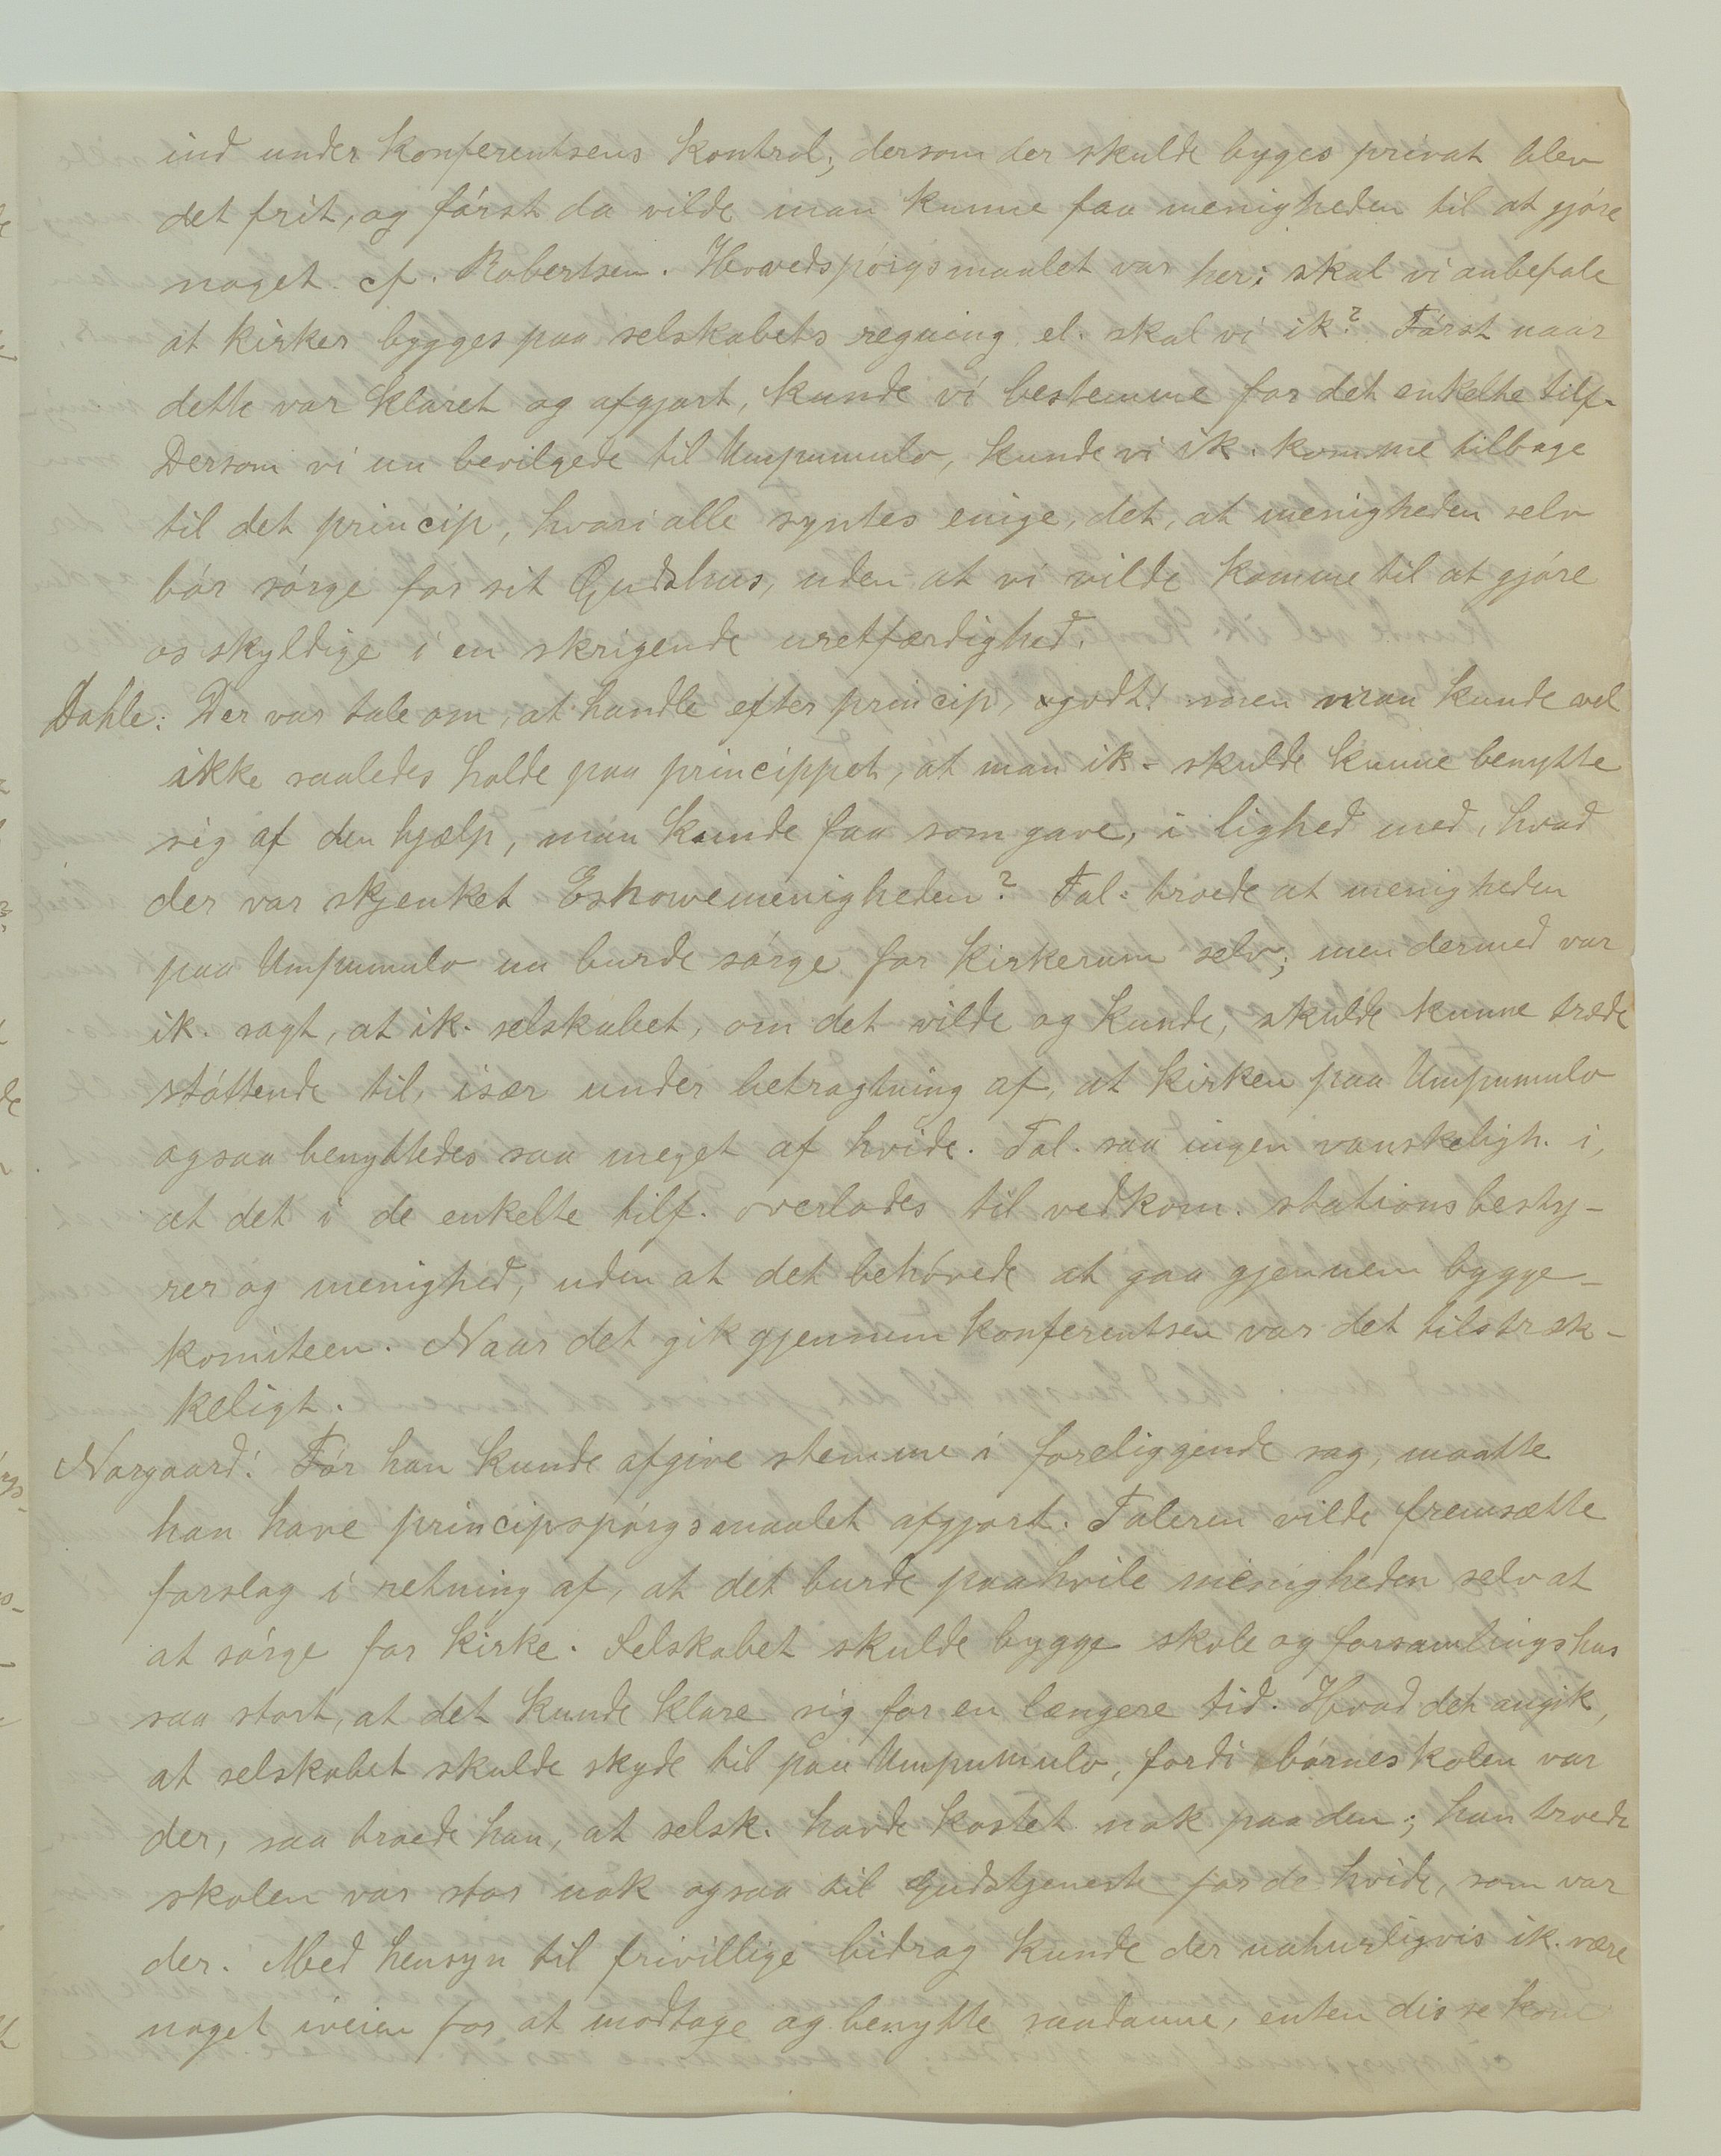 ind under konferentsens kontrol; dersom der skulde bygges privat blev
det frit, og først da vilde man kunne faa menigheden til at gjøre
noget. cf. Robertsen. Hovedspørgsmaalet var her: skal vi anbefale
at kirker bygges paa selskabets regning el. skal vi ik? Først naar
dette var klaret og afgjort, kunde vi bestemme for det enkelte tilf.
Dersom vi nu bevilgede til Umpumulo, kunde vi ik. komme tilbage
til det princip, hvori alle syntes enige, det, at menigheden selv
bør sørge for sit Gudshus, uden at vi vilde komme til at gjøre
os skyldige i en skrigende uretfærdighed.
Dahle: Der var tale om, at handle efter princip, godt! men man kunde vel
ikke saaledes holde paa princippet, at man ik. skulde kunne benytte
sig af den hjælp, man kunde faa som gave, i lighed med, hvad
der var skjenket Eshowemenigheden? Tal. troede at menigheden
paa Umpumulo nu burde sørge for kirkerum selv; men dermed var
ik. sagt, at ik. selskabet, om det vilde og kunde, skulde kunne træde
støttende til, især under betragtning af, at kirken paa Umpumulo
ogsaa benyttedes saa meget af hvide. Tal. saa ingen vanskeligh. i,
at det i de enkelte tilf. overlodes til vedkom. stationsbesty-
rer og menighed, uden at det behøvede at gaa gjennem bygge-
komiteen. Naar det gik gjennem konferentsen var det tilstræk-
keligt.
Norgaard: Før han kunde afgive stemme i foreliggende sag, maatte
han have principspørgsmaalet afgjort. Taleren vilde fremsætte
forslag i retning af, at det burde paahvile menigheden selv at
at sørge for kirke. Selskabet skulde bygge skole og forsamlingshus
saa stort, at det kunde klare sig for en længere tid. Hvad det angik,
at selskabet skulde skyde til paa Umpumulo, fordi børneskolen var
der, saa troede han, at selsk. havde kostet nok paa den; han troede
skolen var stor nok ogsaa til Gudstjeneste for de hvide, som var
der. Med hensyn til frivillige bidrag kunde der naturligvis ik. være
noget iveien for at modtage og benytte saadanne, enten disse kom